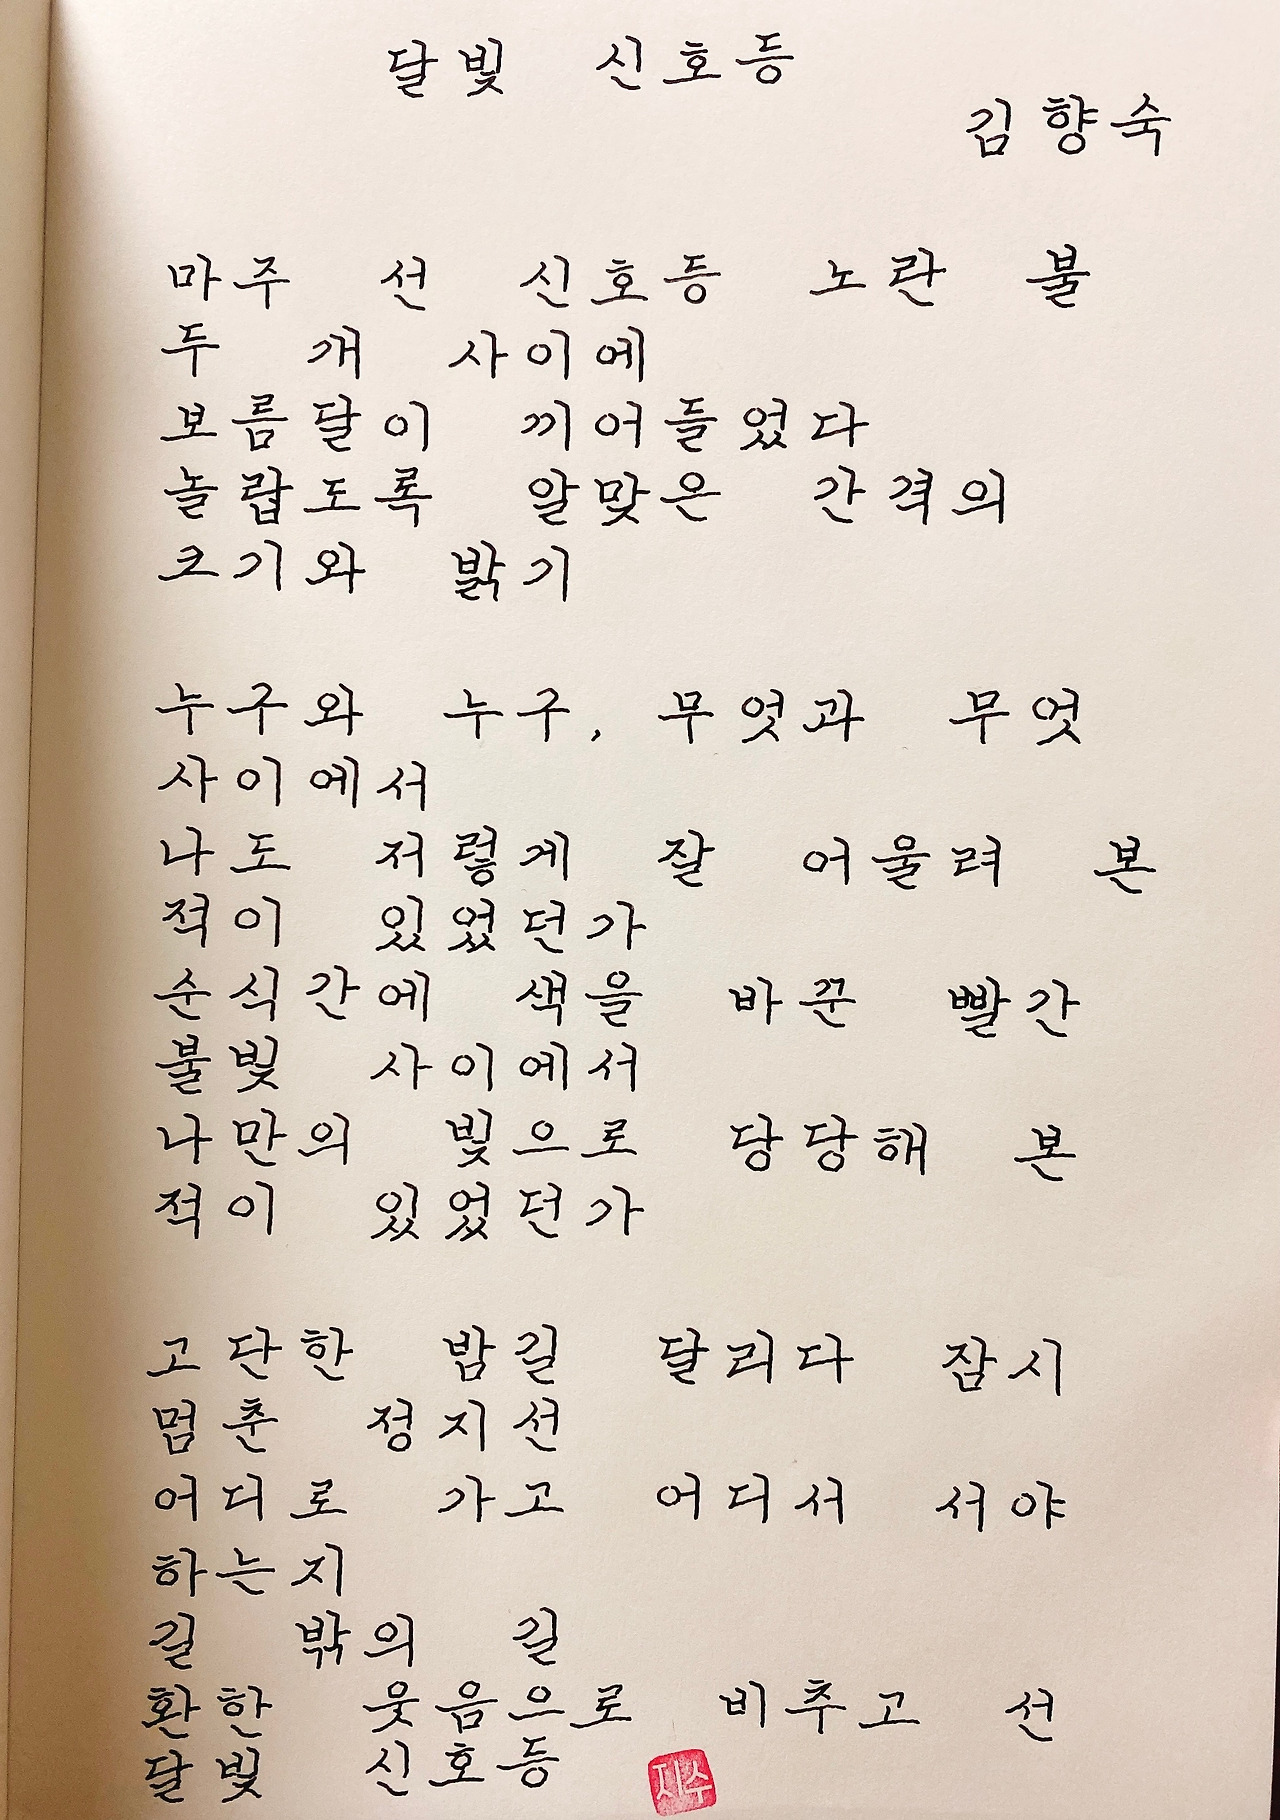 달빛 신호등
김향숙
마주 선 신호등 노란 불
두 개 사이에
보름달이 끼어들었다
놀랍도록 알맞은 간격의
크기와 밝기
누구와 누구, 무엇과 무엇
사이에서
나도 저렇게 잘 어울려 본
적이 있었던가
순식간에 색을 바꾼 빨간
불빛 사이에서
나만의 빛으로 당당해 본
적이 있었던가
고단한 밤길 달리다 잠시
멈춘 정지선
어디로 가고 어디서 서야
하는지
길 밖의 길
환한 웃음으로 비추고 선
달빛 신호등
지수